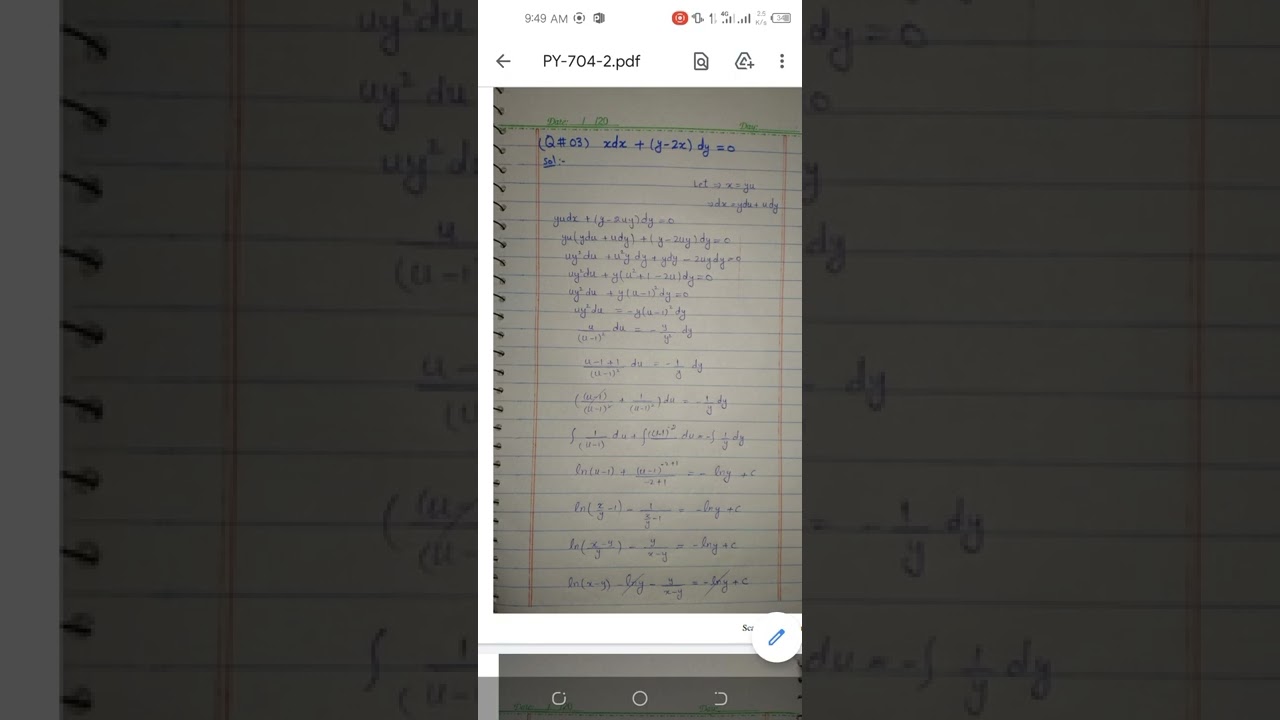 9:49 AM
4G
2.5 K/s
34
PY-704-2.pdf
Date: 1 /20 Day:
(Q # 03) xdx + (y-2x) dy = 0
Sol:-
Let ⇒ x = yu
⇒ dx = ydu + udy
yudx + (y-2uy)dy = 0
yu(ydu + udy) + (y-2uy)dy = 0
uy²du + u²y dy + ydy - 2uydy = 0
uy²du + y(u²+1-2u)dy = 0
uy²du + y(u-1)²dy = 0
uy²du = -y(u-1)²dy
u/(u-1)² du = - y/y² dy
u-1+1/(u-1)² du = - 1/y dy
((u-1)/(u-1)² + 1/(u-1)²) du = - 1/y dy
∫ 1/(u-1) du + ∫(u-1)⁻² du = -∫ 1/y dy
ln(u-1) + (u-1)⁻²⁺¹/-2+1 = - lny + c
ln(x/y - 1) - 1/(x/y - 1) = -lny + c
ln(x-y/y) - y/x-y = -lny + c
ln(x-y) - lny - y/x-y = -lny + c
uy² du
uy² du
dy = 0
dy
∫ 1/(u-1
du = -∫ 1/y dy
= - 1/y dy